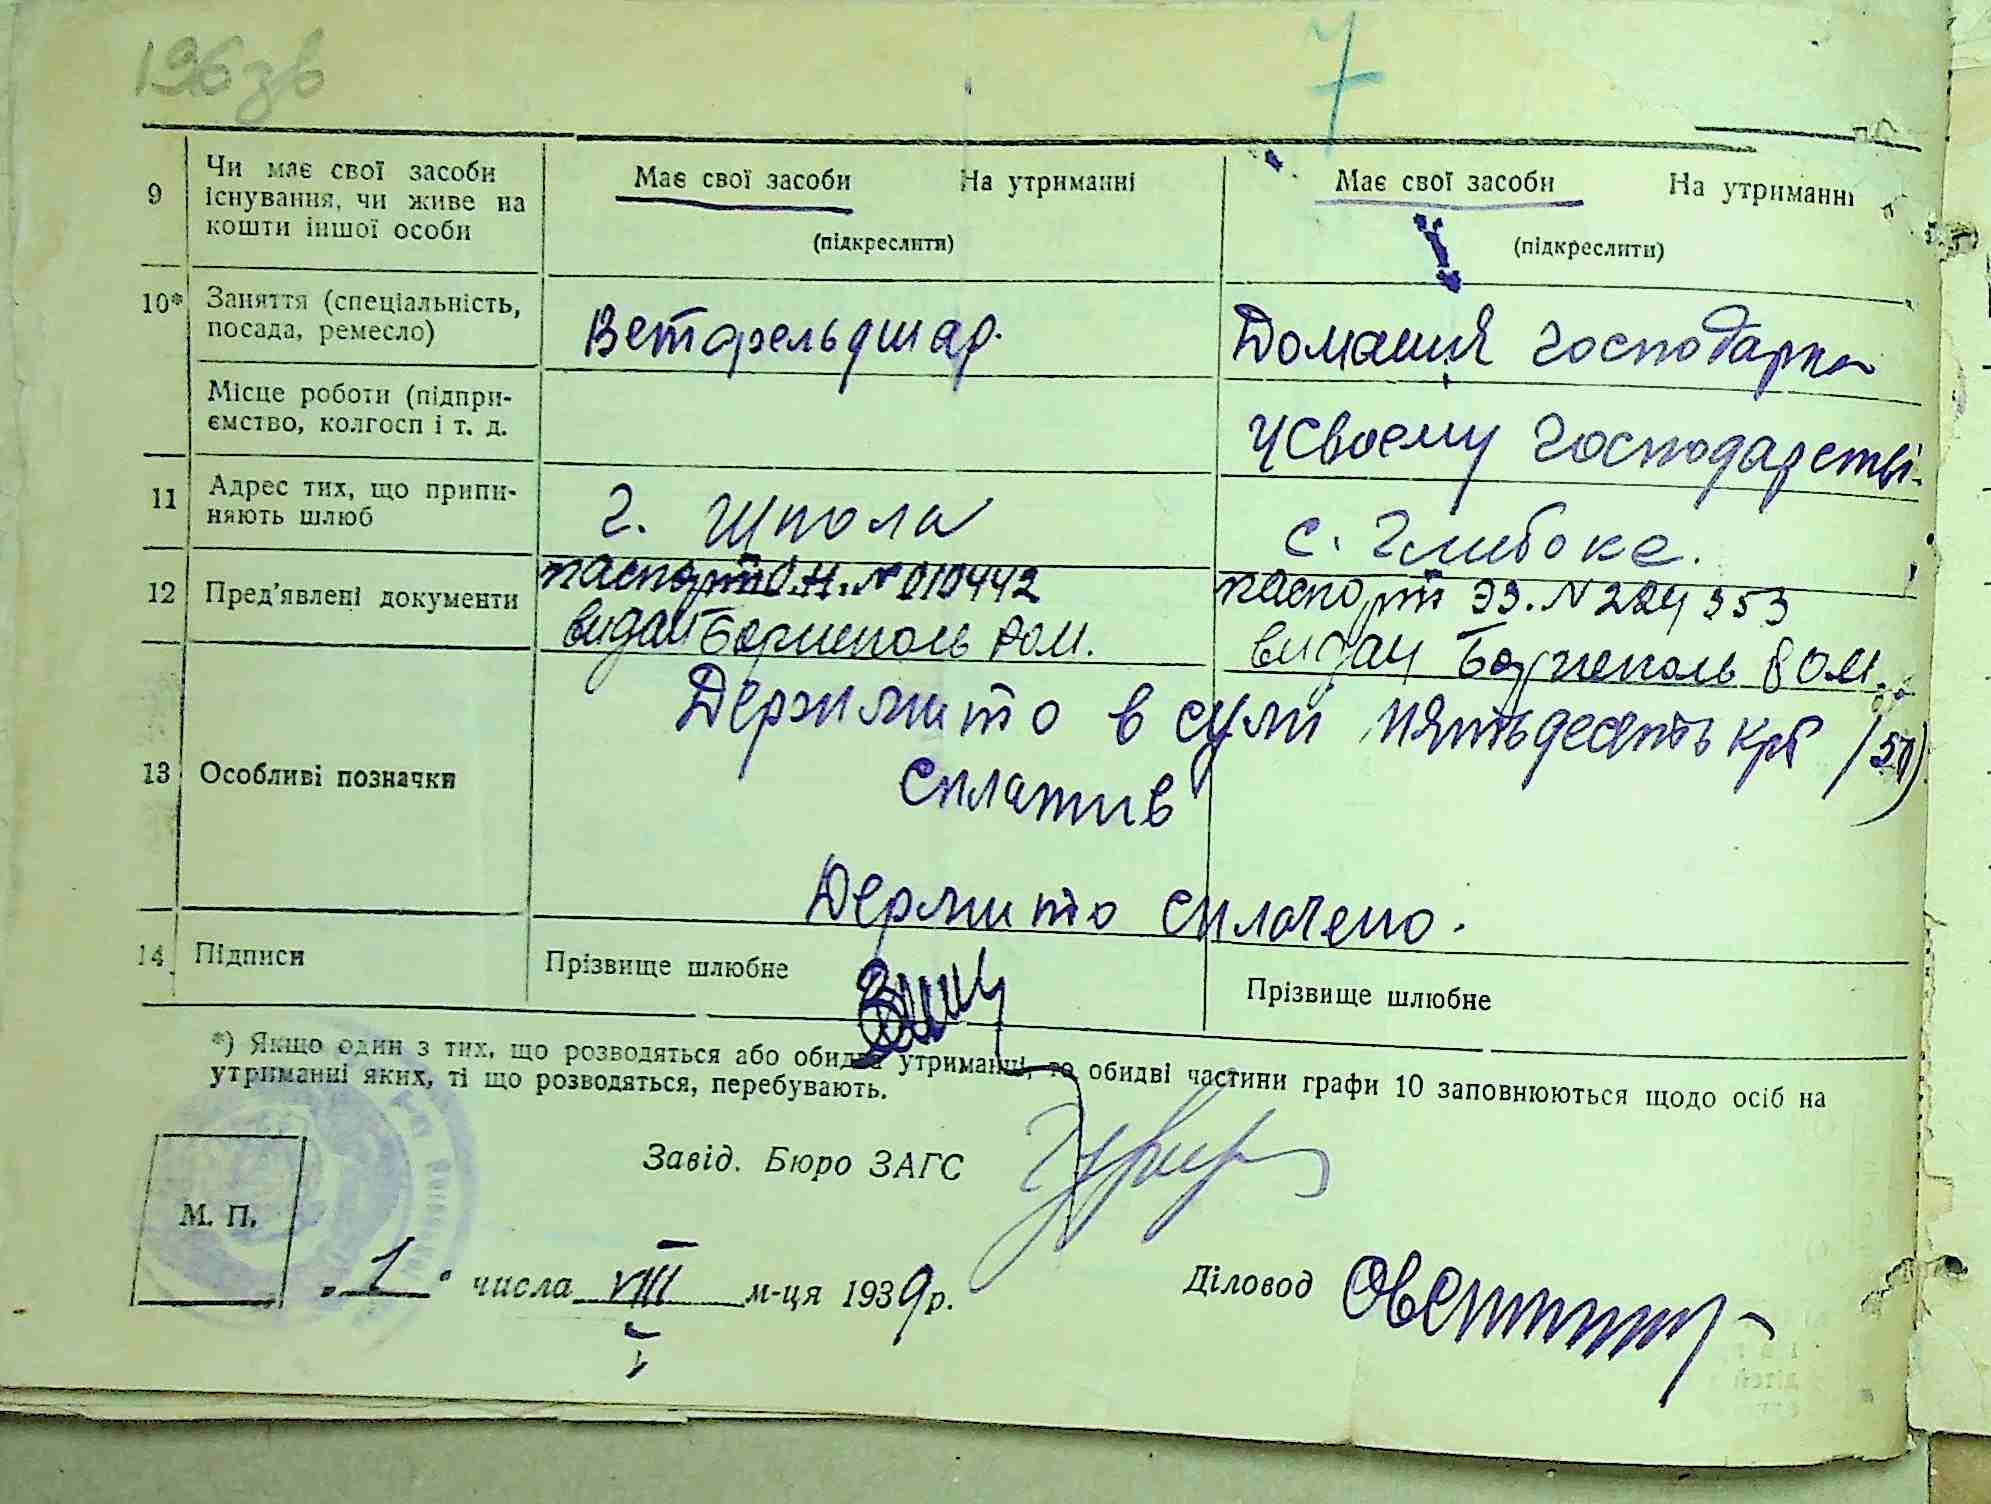 196 зв
7
9
Чи має свої засоби
існування, чи живе на
кошти іншої особи
Має свої засоби На утриманні
(підкреслити)
Має свої засоби На утриманні
(підкреслити)
10*
Заняття (спеціальність,
посада, ремесло)
Ветфельдшар.
Домашня господарка
Місце роботи (підпри-
ємство, колгосп і т. д.
у своєму господарстві.
11
Адрес тих, що припи-
няють шлюб
г. Шпола
с. Глибоке.
12
Пред'явлені документи
паспорт О.Н. № 010442
видан Боришполь РОМ.
паспорт ЭЭ. № 224353
видан Боришполь РОМ.
13
Особливі позначки
Держмито в сумі пятьдесять крб (50)
сплатив
Держмито сплачено.
14
Підписи
Прізвище шлюбне
Прізвище шлюбне
*) Якщо один з тих, що розводяться або обидва утриманні, то обидві частини графи 10 заповнюються щодо осіб на
утриманні яких, ті що розводяться, перебувають.
Завід. Бюро ЗАГС
М. П.
„1" числа VIII м-ця 1939 р.
Діловод